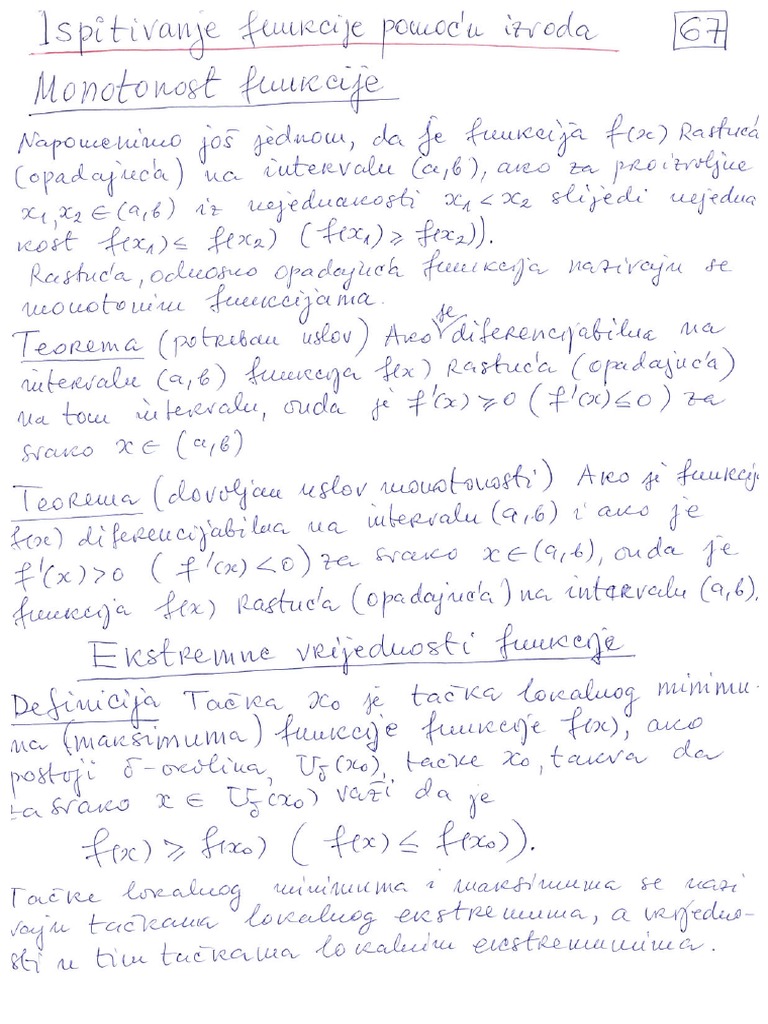 Ispitivanje funkcije pomoću izvoda 67
Monotonost funkcije
Napomenimo još jednom, da je funkcija f(x) Rastuća
(opadajuća) na intervalu (a,b), ako za proizvoljne
x₁,x₂ ∈ (a,b) iz nejednakosti x₁ < x₂ slijedi nejedna
kost f(x₁) ≤ f(x₂) (f(x₁) ≥ f(x₂)).
Rastuća, odnosno opadajuća funkcija nazivaju se
monotonim funkcijama.
Teorema (potreban uslov) Ako je diferencijabilna na
intervalu (a,b) funkcija f(x) Rastuća (opadajuća)
na tom intervalu, onda je f'(x) ≥ 0 (f'(x) ≤ 0) za
svako x ∈ (a,b)
Teorema (dovoljan uslov monotonosti) Ako je funkcij
f(x) diferencijabilna na intervalu (a,b) i ako je
f'(x) > 0 (f'(x) < 0) za svako x ∈ (a,b), onda je
funkcija f(x) Rastuća (opadajuća) na intervalu (a,b).
Ekstremne vrijednosti funkcije
Definicija Tačka x₀ je tačka lokalnog minimu-
ma (maksimuma) funkcije funkcije f(x), ako
postoji δ-okolina, U_δ(x₀), tačke x₀, takva da
za svako x ∈ U_δ(x₀) važi da je
f(x) ≥ f(x₀) (f(x) ≤ f(x₀)).
Tačke lokalnog minimuma i maksimuma se nazi
vaju tačkama lokalnog ekstremuma, a vrijedno-
sti u tim tačkama lokalnim ekstremumima.